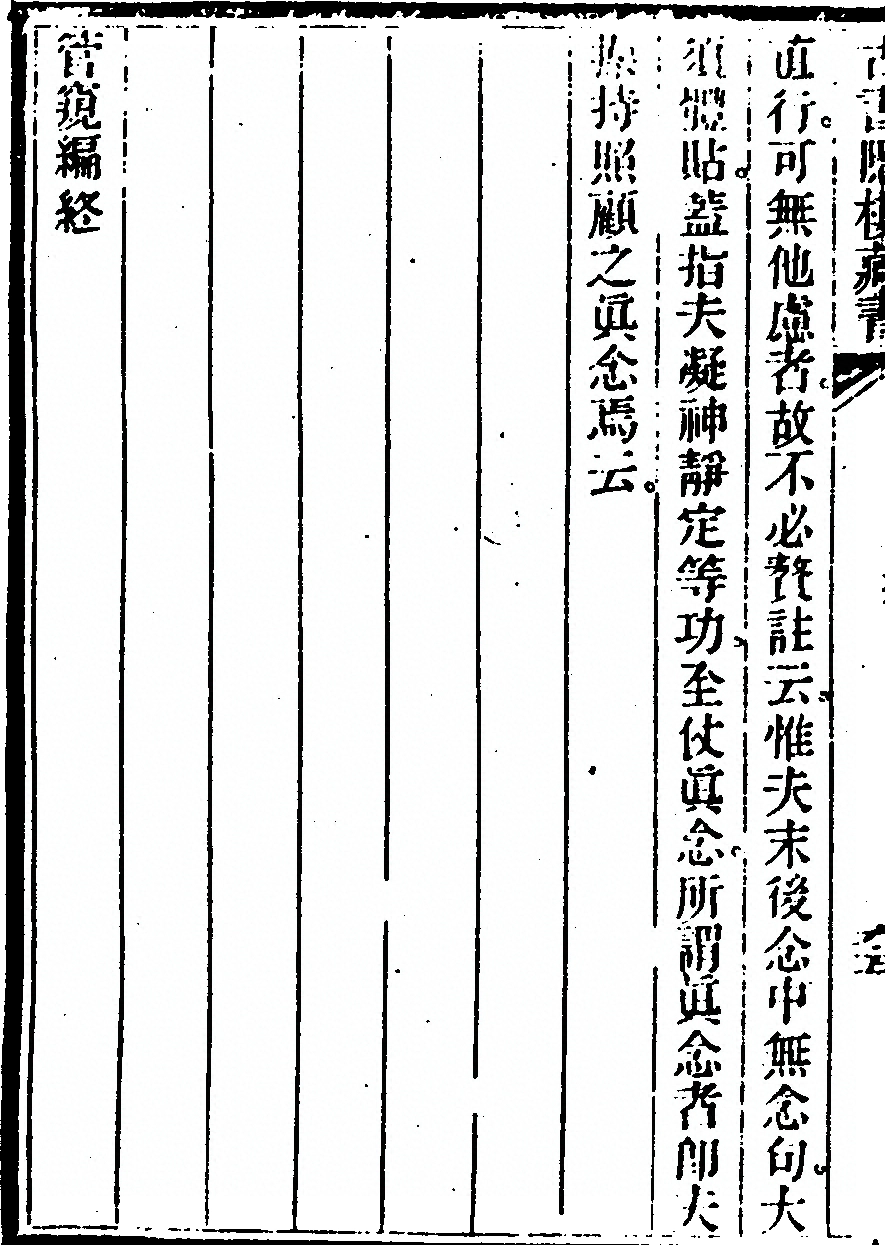 古書隱樓藏書
直行。可無他慮者。故不必贅註云。惟夫末後念中無念句。大
須體貼。蓋指夫凝神靜定等功。至仗眞念。所謂眞念者卽夫
持照顧之眞念焉云。
管窺編終